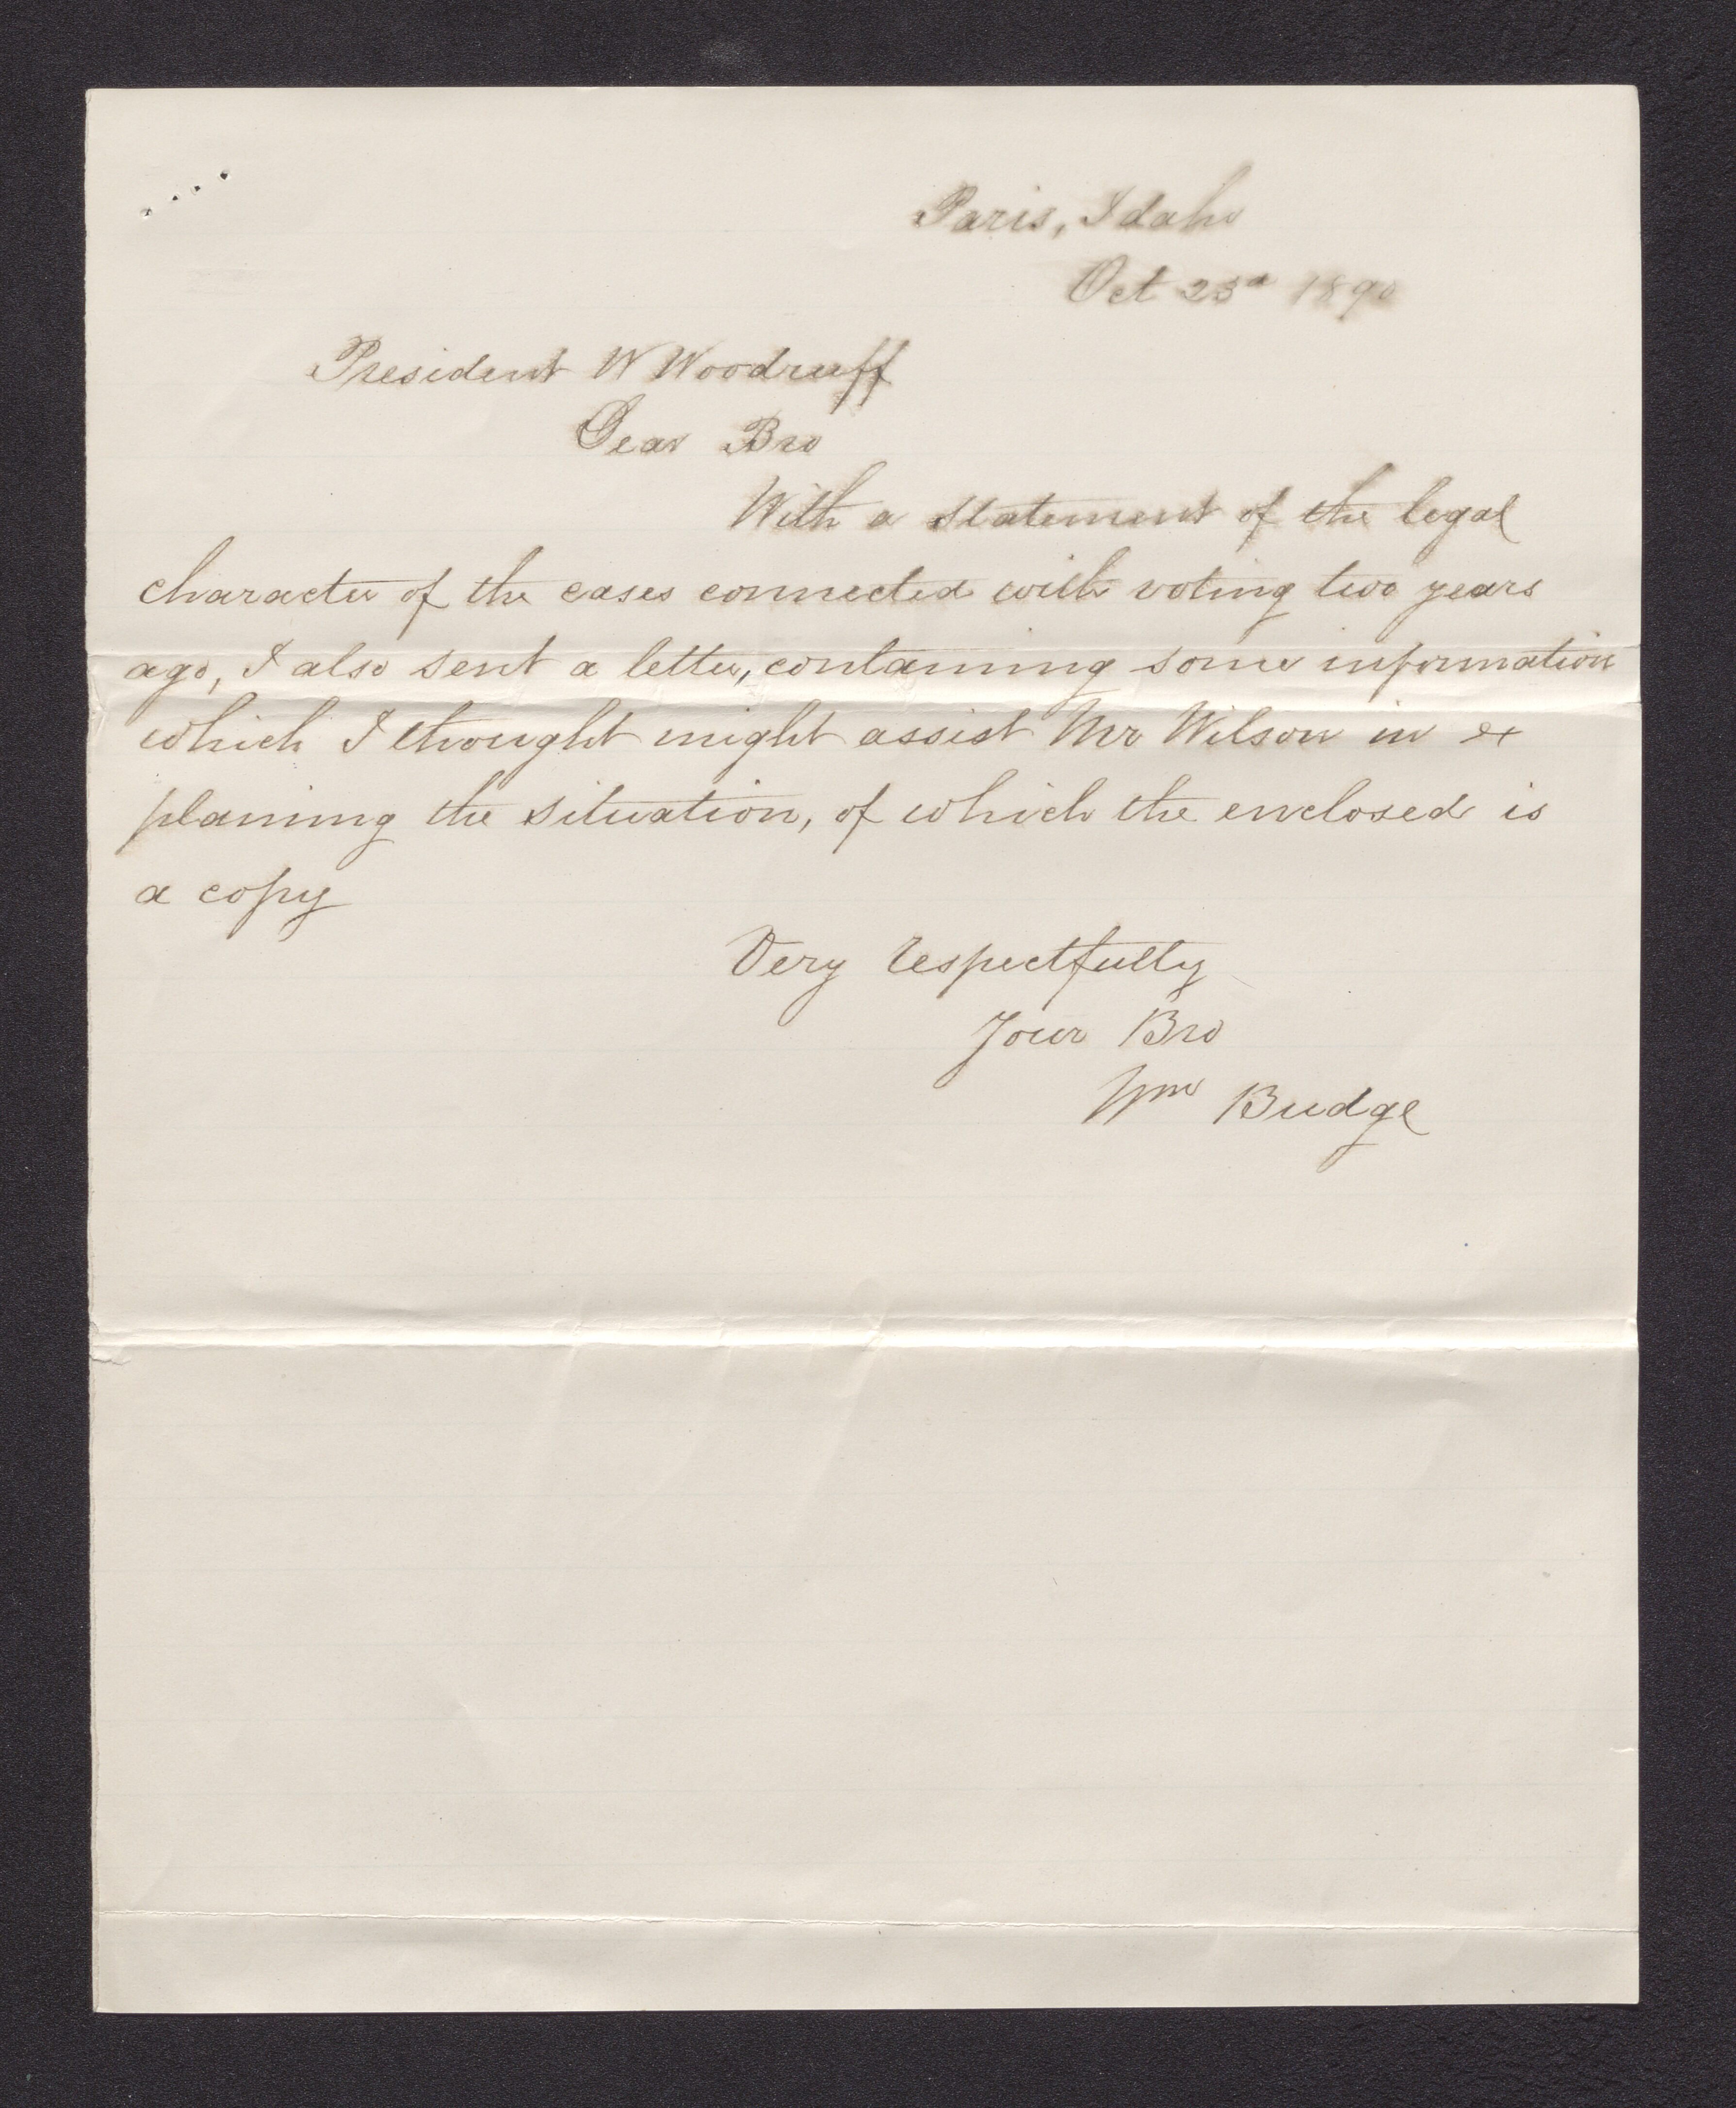 Paris, Idaho
Oct 23d 1890
President W Woodruff
Dear Bro
With a statement of the legal
character of the cases connected with voting two years
ago, I also sent a letter, containing some information
which I thought might assist Mr Wilson in ex
plaining the situation, of which the enclosed is
a copy
Very respectfully
Your Bro
Wm Budge